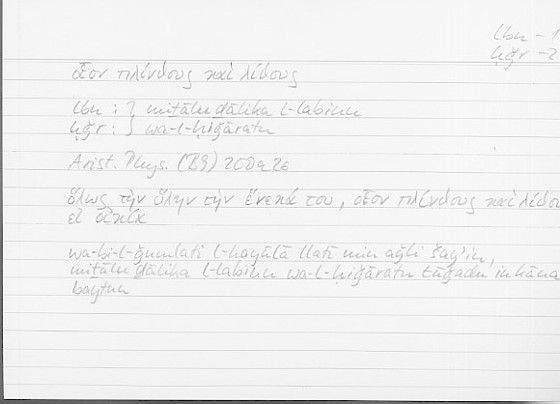 lbn – 1
ḥǧr – 2
οἷον πλίνθους καὶ λίθους
lbn : } miṯālu ḏālika l-labinu
ḥǧr : } wa-l-ḥiǧāratu
Arist. Phys. (B9) 200a26
ὅλως τὴν ὕλην τὴν ἕνεκά του, οἷον πλίνθους καὶ λίθου
εἰ οἰκία
wa-bi-l-ǧumlati l-hayūlā llatī min aǧli šayʾin,
miṯālu ḏālika l-labinu wa-l-ḥiǧāratu tūǧadu in kāna
baytun